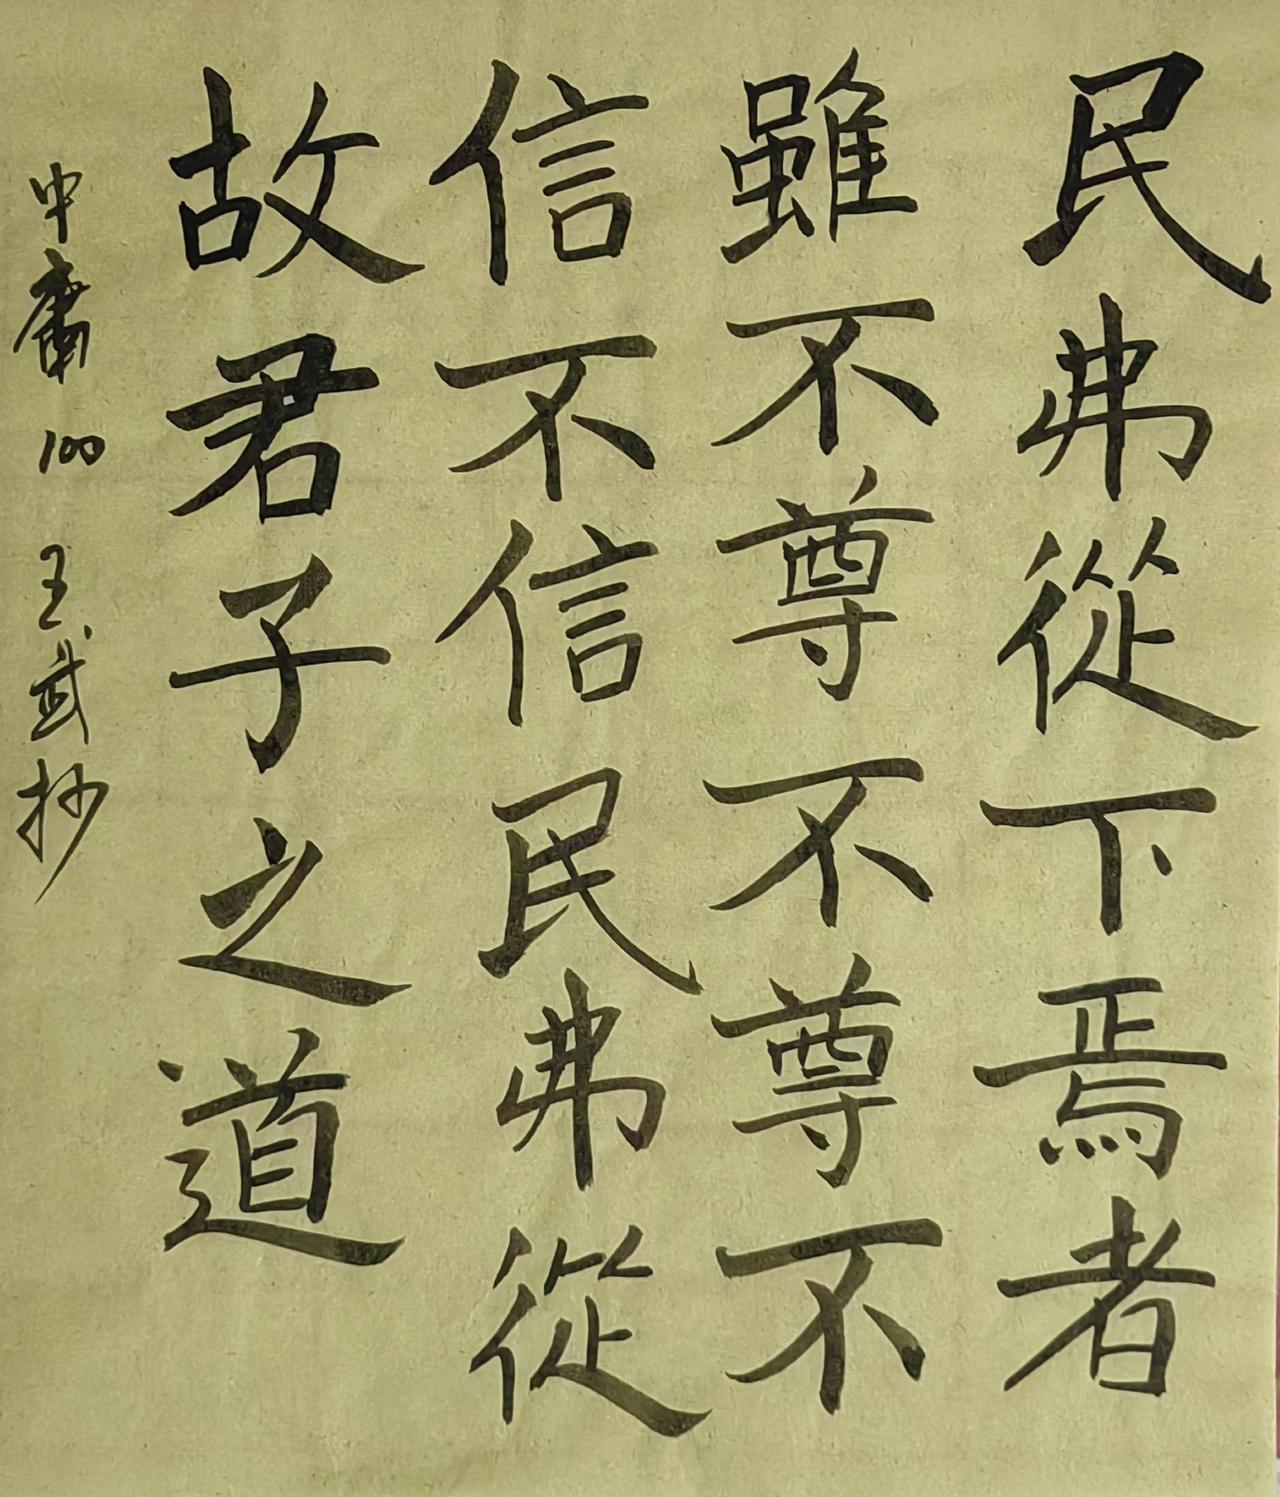 民弗從下焉者
雖不尊不尊不
信不信民弗從
故君子之道
中庸100 王武抄